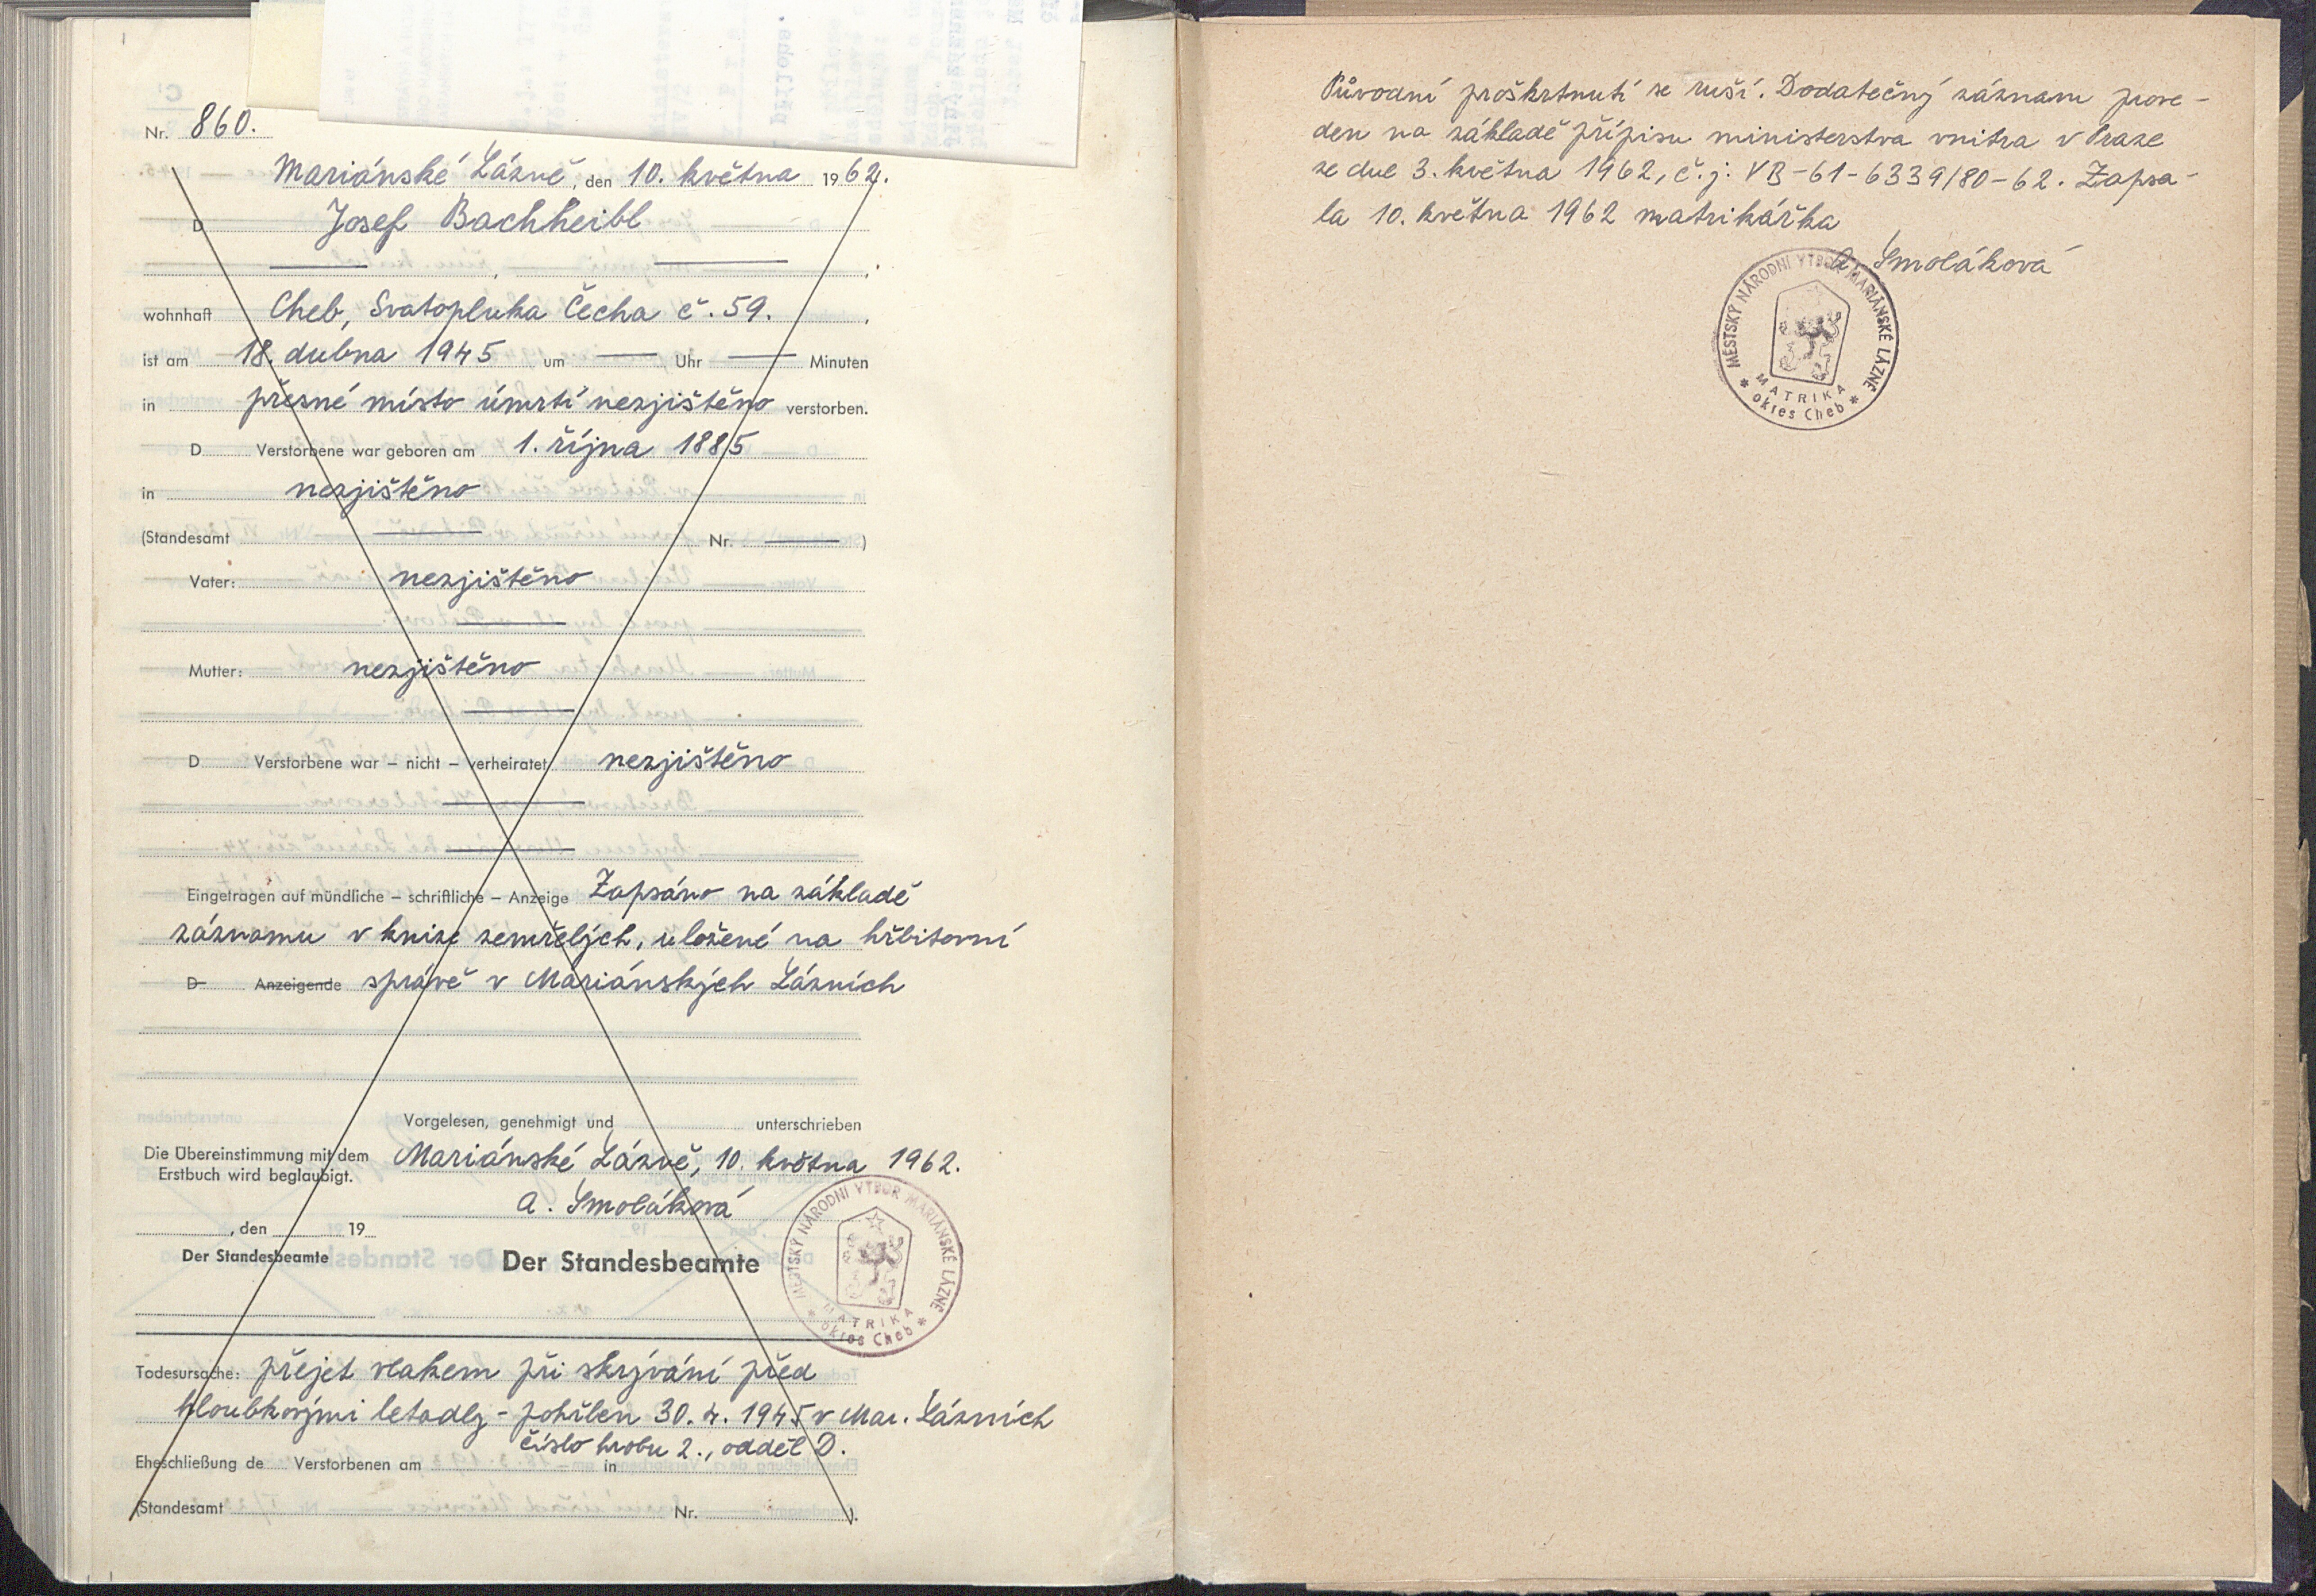 Nr. 860.
Mariánské Lázně, den 10. května 1962.
D Josef Bachheibl
wohnhaft Cheb, Svatopluka Čecha č. 59.,
ist am 18. dubna 1945 um — Uhr — Minuten
in přesné místo úmrtí nezjištěno verstorben.
D Verstorbene war geboren am 1. října 1885
in nezjištěno
(Standesamt — Nr. — )
Vater: nezjištěno
Mutter: nezjištěno
D Verstorbene war – nicht – verheiratet nezjištěno
Eingetragen auf mündliche – schriftliche – Anzeige Zapsáno na základě
záznamu v knize zemřelých, uložené na hřbitovní
D Anzeigende správě v Mariánských Lázních
Vorgelesen, genehmigt und unterschrieben
Die Übereinstimmung mit dem
Erstbuch wird beglaubigt.
Mariánské Lázně, 10. května 1962.
A. Smoláková
, den 19
Der Standesbeamte
Der Standesbeamte
MĚSTSKÝ NÁRODNÍ VÝBOR MARIÁNSKÉ LÁZNĚ
MATRIKA
* okres Cheb *
Todesursache: přejet vlakem při skrývání před
hloubkovými letadly - pohřben 30. 4. 1945 v Mar. Lázních
číslo hrobu 2., odděl D.
Eheschließung de Verstorbenen am in
(Standesamt Nr. ).
Původní proškrtnutí se ruší. Dodatečný záznam prove-
den na základě přípisu ministerstva vnitra v Praze
ze dne 3. května 1962, č.j: VB-61-6339/80-62. Zapsa-
la 10. května 1962 matrikářka
A. Smoláková
MĚSTSKÝ NÁRODNÍ VÝBOR MARIÁNSKÉ LÁZNĚ
MATRIKA
* okres Cheb *